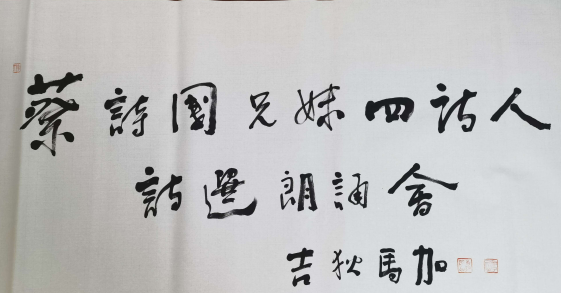 蔡詩國兄妹四詩人
詩選朗誦會
吉狄馬加